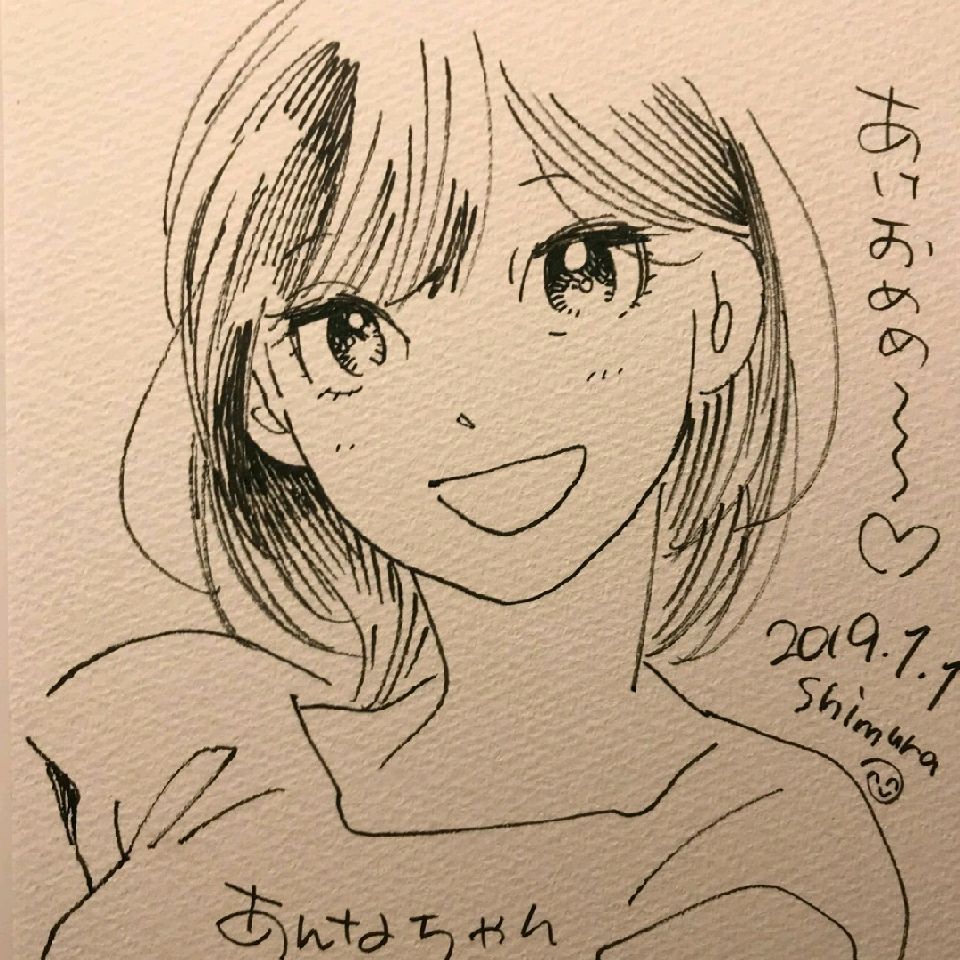 あけおめめ〜〜♡
2019.1.1
Shimura
あんなちゃん